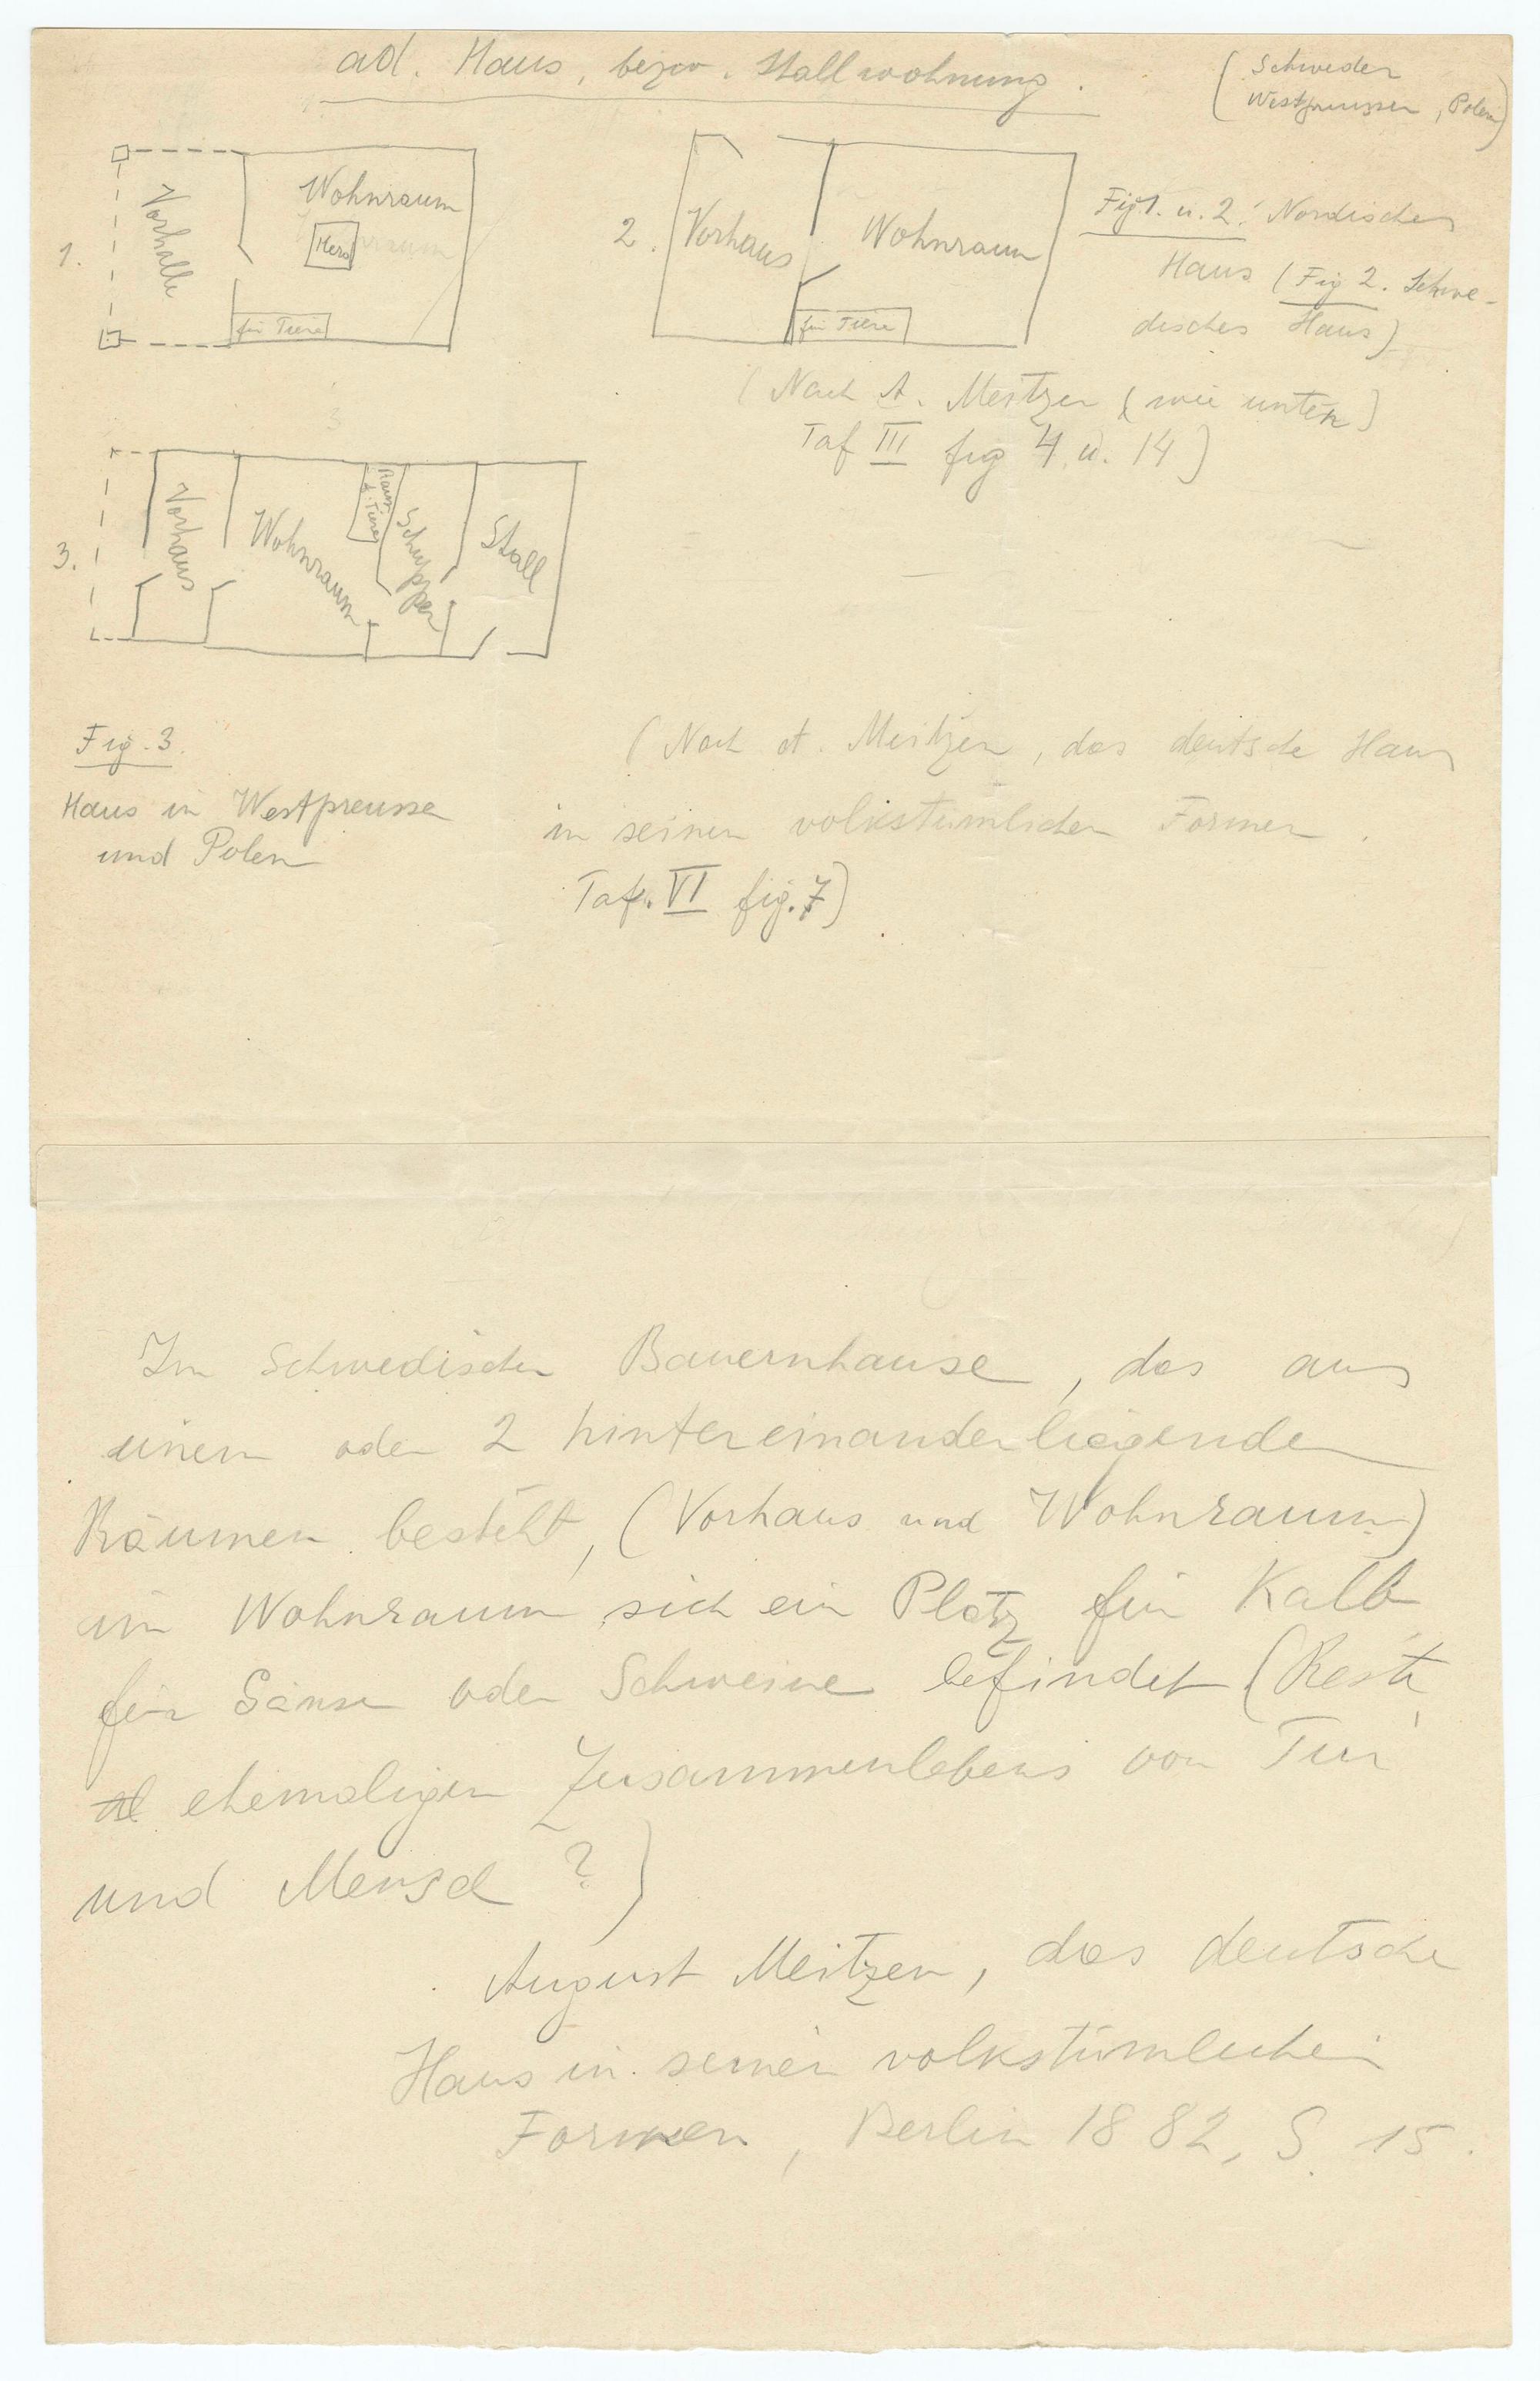 ad. Haus, bezw. Stallwohnung.
(Schweden
Westpreussen, Polen)
1.
Vorhalle
Wohnraum
Herd
für Tiere
2.
Vorhaus
Wohnraum
für Tiere
Fig 1. u. 2: Nordisches
Haus (Fig 2. Schwe-
disches Haus)
(Nach A. Meitzen (wie unten)
Taf III fig 4 u. 14)
3
3.
Vorhaus
Wohnraum
Raum
f. Tiere
Schuppen
Stall
Fig. 3.
Haus in Westpreussen
und Polen
(Nach A. Meitzen, das deutsche Haus
in seinen volkstümlichen Formen.
Taf. VI fig. 7)
Im Schwedischen Bauernhause, das aus
einem oder 2 hintereinanderliegenden
Räumen besteht, (Vorhaus und Wohnraum)
im Wohnraum sich ein Platz für Kalb
für Gänse oder Schweine befindet (Reste
ehemaligen Zusammenlebens von Tier
und Mensch ?)
August Meitzen, das deutsche
Haus in seinen volkstümlichen
Formen, Berlin 1882, S. 15.